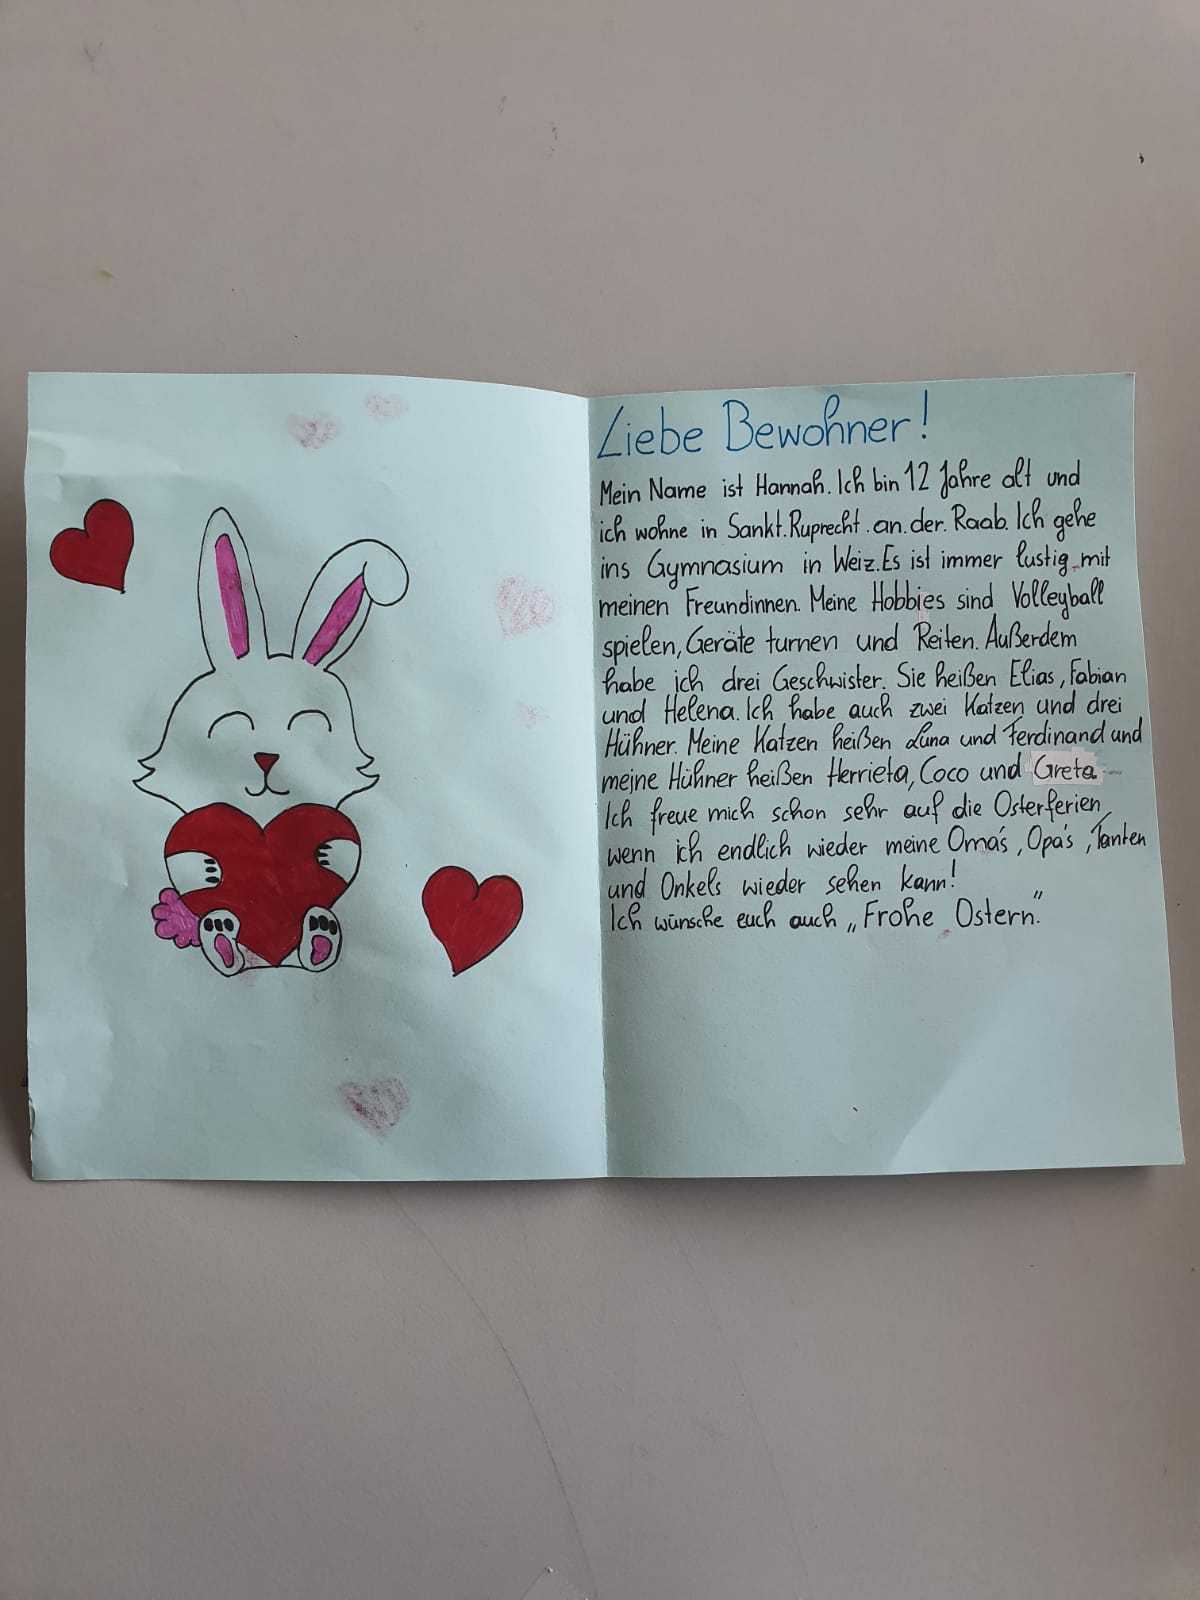 Liebe Bewohner!
Mein Name ist Hannah. Ich bin 12 Jahre alt und
ich wohne in Sankt.Ruprecht.an.der.Raab. Ich gehe
ins Gymnasium in Weiz. Es ist immer lustig mit
meinen Freundinnen. Meine Hobbies sind Volleyball
spielen, Geräte turnen und Reiten. Außerdem
habe ich drei Geschwister. Sie heißen Elias, Fabian
und Helena. Ich habe auch zwei Katzen und drei
Hühner. Meine Katzen heißen Luna und Ferdinand und
meine Hühner heißen Herrieta, Coco und Greta
Ich freue mich schon sehr auf die Osterferien,
wenn ich endlich wieder meine Oma's, Opa's, Tanten
und Onkels wieder sehen kann!
Ich wünsche euch auch „Frohe Ostern."